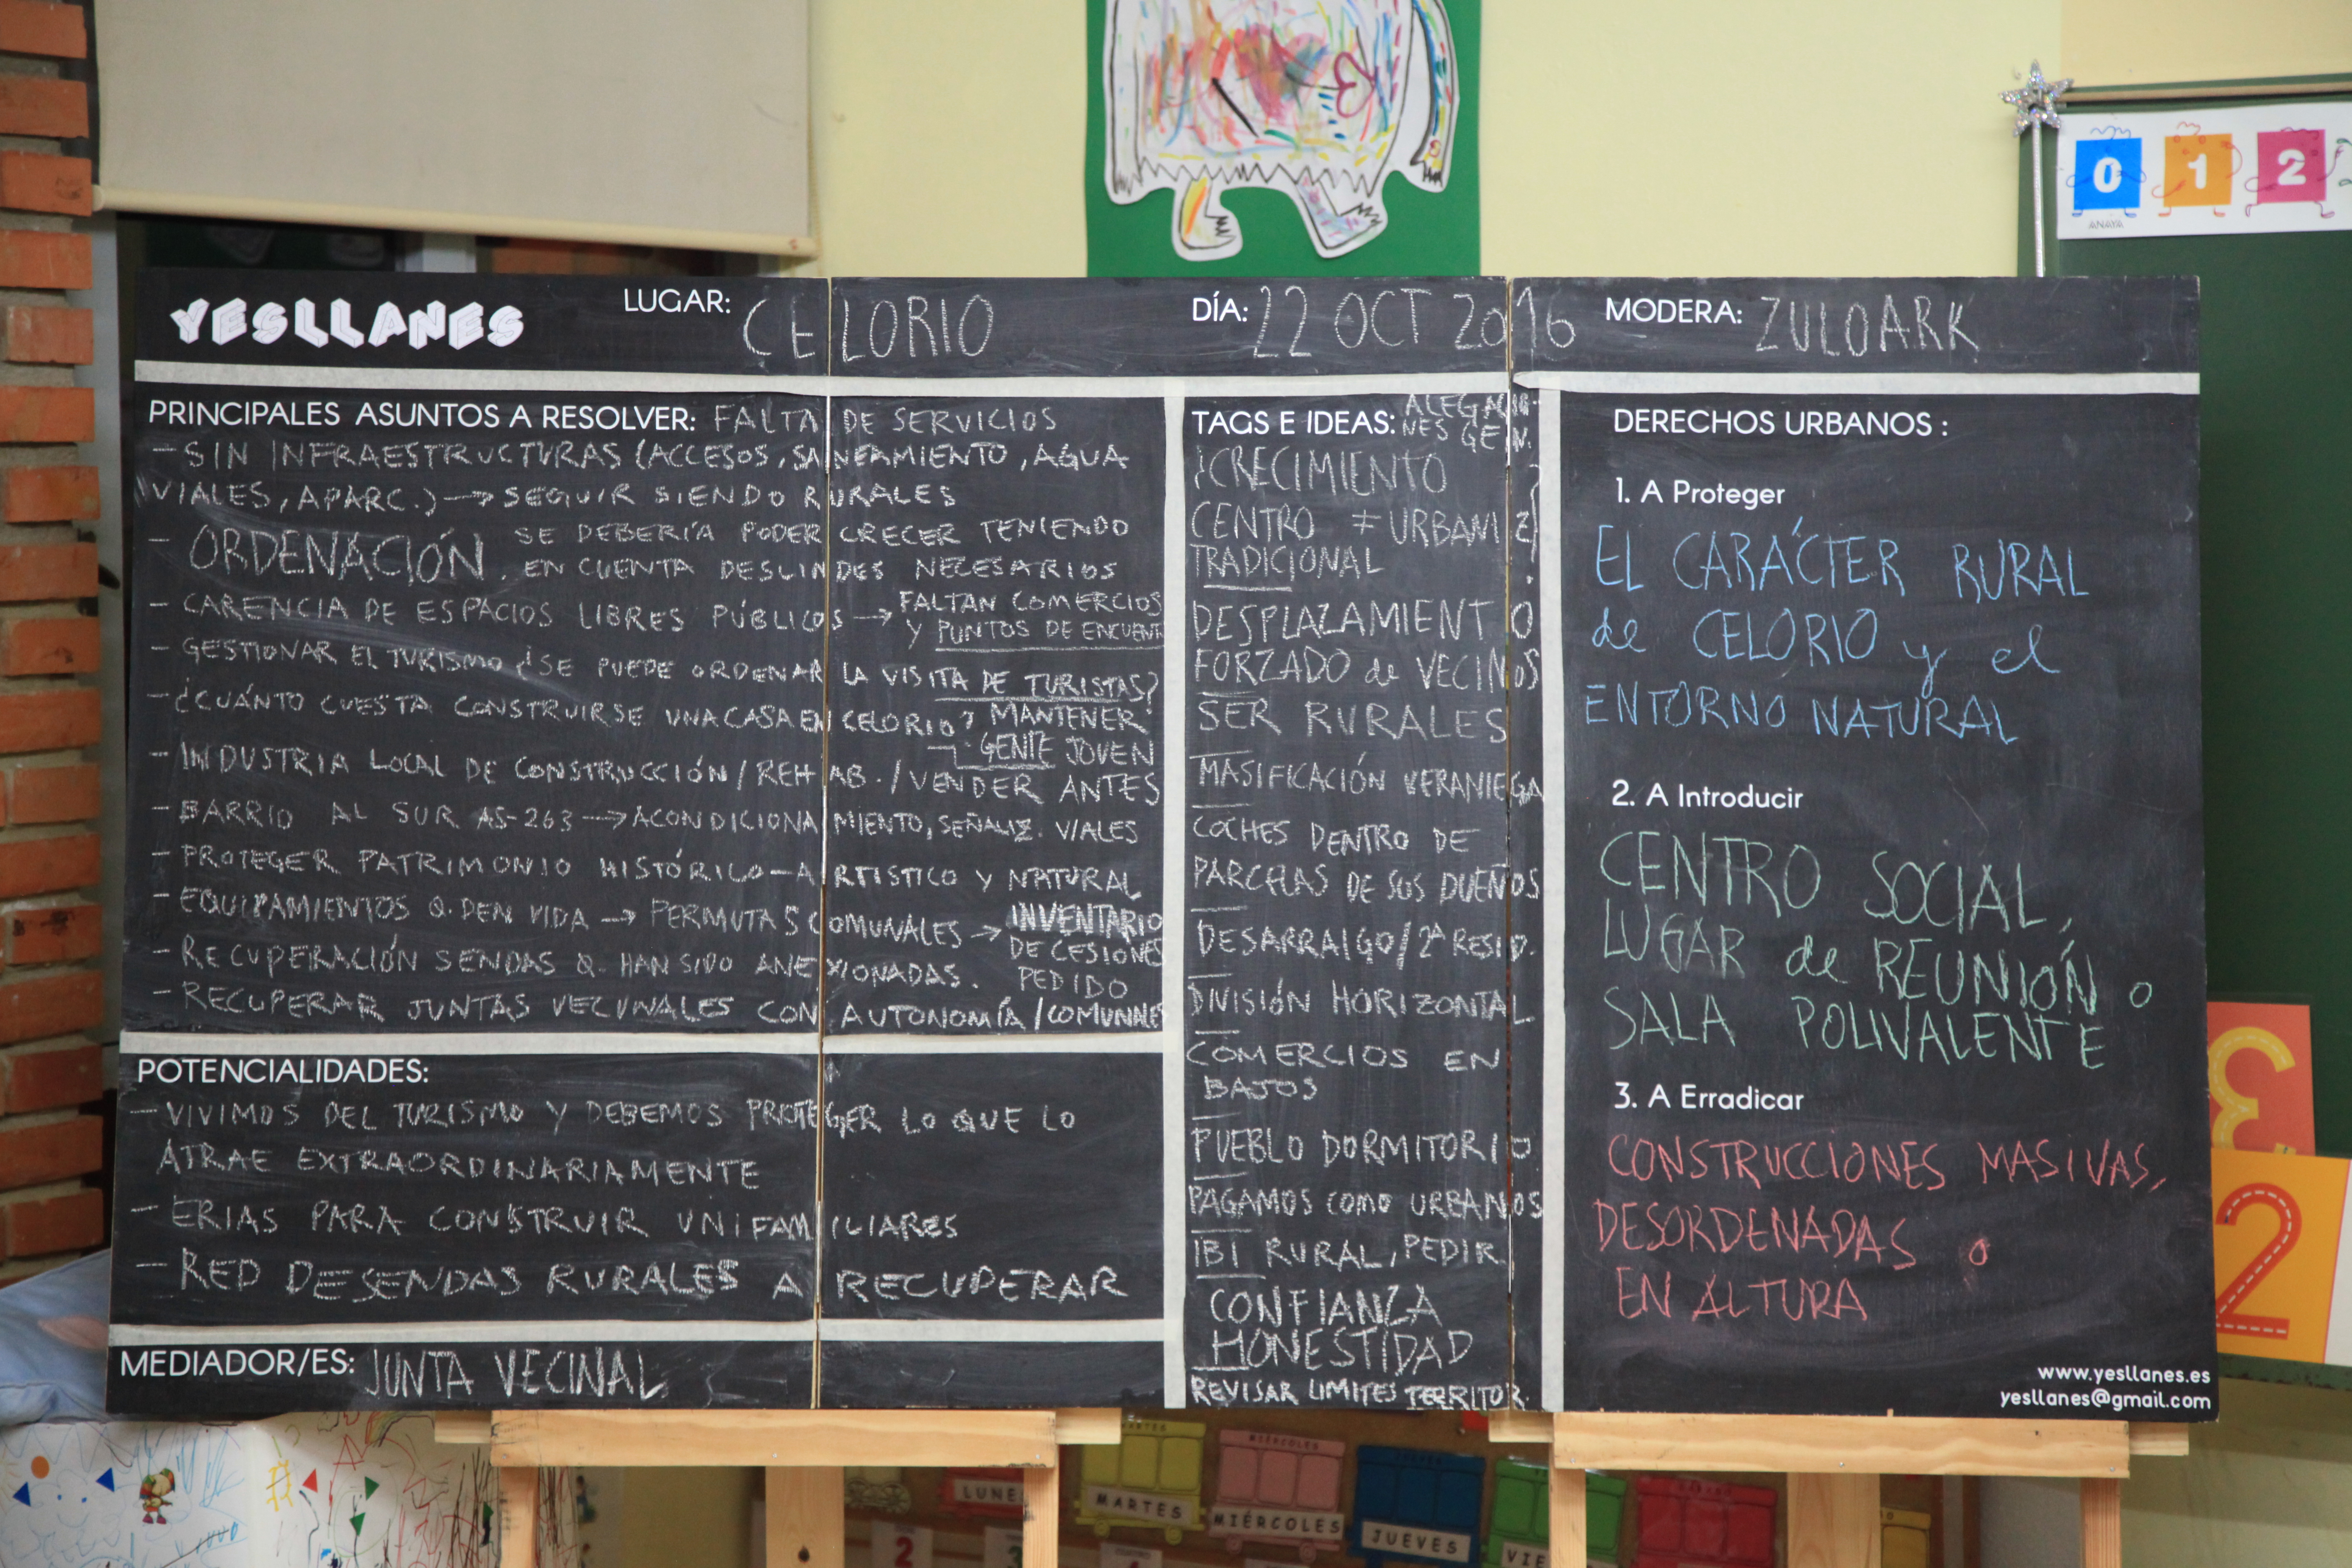 YESLLANES
LUGAR: CELORIO
DÍA: 22 OCT 2016
MODERA: ZULOARK
PRINCIPALES ASUNTOS A RESOLVER: FALTA DE SERVICIOS
- SIN INFRAESTRUCTURAS (ACCESOS, SANEAMIENTO, AGUA
VIALES, APARC.) → SEGUIR SIENDO RURALES
- ORDENACIÓN. SE DEBERÍA PODER CRECER TENIENDO
EN CUENTA DESLINDES NECESARIOS
- CARENCIA DE ESPACIOS LIBRES PÚBLICOS → FALTAN COMERCIOS
Y PUNTOS DE ENCUENT
- GESTIONAR EL TURISMO ¿SE PUEDE ORDENAR LA VISITA DE TURISTAS?
- ¿CUÁNTO CUESTA CONSTRUIRSE UNA CASA EN CELORIO? MANTENER
GENTE JOVEN
- INDUSTRIA LOCAL DE CONSTRUCCIÓN / REHAB. / VENDER ANTES
- BARRIO AL SUR AS-263 → ACONDICIONAMIENTO, SEÑALIZ. VIALES
- PROTEGER PATRIMONIO HISTÓRICO-ARTISTICO Y NATURAL
- EQUIPAMIENTOS Q. DEN VIDA → PERMUTAS COMUNALES → INVENTARIO
DE CESIONES
PEDIDO
- RECUPERACIÓN SENDAS Q. HAN SIDO ANEXIONADAS.
- RECUPERAR JUNTAS VECINALES CON AUTONOMÍA / COMUNALES
POTENCIALIDADES:
- VIVIMOS DEL TURISMO Y DEBEMOS PROTEGER LO QUE LO
ATRAE EXTRAORDINARIAMENTE
- ERIAS PARA CONSTRUIR UNIFAMILIARES
- RED DE SENDAS RURALES A RECUPERAR
MEDIADOR/ES: JUNTA VECINAL
TAGS E IDEAS: ALEGACIO-
NES GEN.
¿CRECIMIENTO
CENTRO ≠ URBANIZ
TRADICIONAL
DESPLAZAMIENTO
FORZADO de VECINOS
SER RURALES
MASIFICACIÓN VERANIEGA
COCHES DENTRO DE
PARCELAS DE SUS DUEÑOS
DESARRAIGO / 2ª RESID.
DIVISIÓN HORIZONTAL
COMERCIOS EN
BAJOS
PUEBLO DORMITORIO
PAGAMOS COMO URBANOS
IBI RURAL, PEDIR
CONFIANZA
HONESTIDAD
REVISAR LIMITES TERRITOR.
DERECHOS URBANOS :
1. A Proteger
EL CARÁCTER RURAL
de CELORIO y el
ENTORNO NATURAL
2. A Introducir
CENTRO SOCIAL,
LUGAR de REUNIÓN o
SALA POLIVALENTE
3. A Erradicar
CONSTRUCCIONES MASIVAS,
DESORDENADAS o
EN ALTURA
www.yesllanes.es
yesllanes@gmail.com
0 1 2
ANAYA
3
2
LUNE
MARTES
MIÉRCOLES
MIÉRCOLES
JUEVES
VIE
2